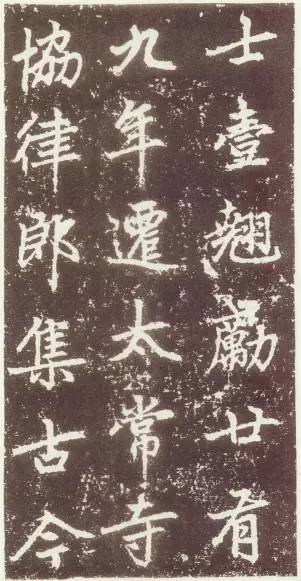 士壹翹勵廿有
九年遷太常寺
協律郎集古今